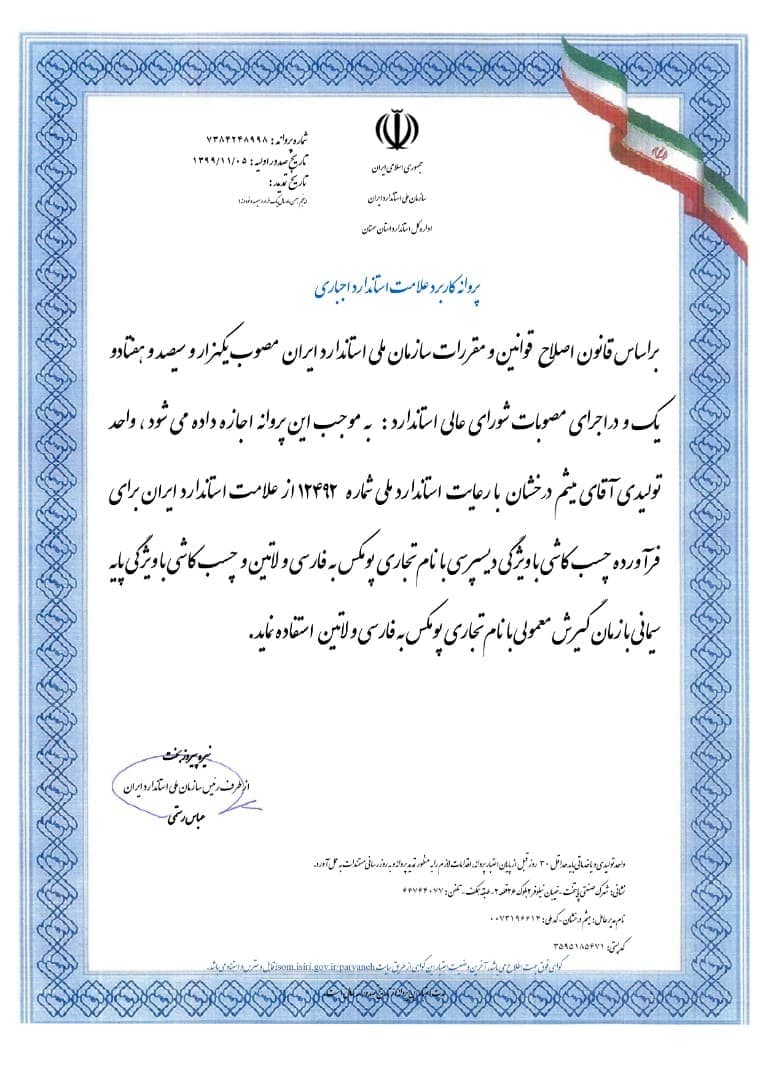 جمهوری اسلامی ایران
سازمان ملی استاندارد ایران
اداره کل استاندارد استان سمنان
شماره پروانه : ۷۳۸۴۲۴۸۹۹۸
تاریخ صدور اولیه : ۱۳۹۹/۱۱/۰۵
تاریخ تمدید :
پروانه کاربرد علامت استاندارد اجباری
براساس قانون اصلاح قوانین و مقررات سازمان ملی استاندارد ایران مصوب یکهزار و سیصد و هفتاد و
یک و در اجرای مصوبات شورای عالی استاندارد : به موجب این پروانه اجازه داده می شود ، واحد
تولیدی آقای میثم درخشان با رعایت استاندارد ملی شماره ۱۲۴۹۲ از علامت استاندارد ایران برای
فرآورده چسب کاشی با ویژگی دیسپرسی با نام تجاری پومکس به فارسی و لاتین و چسب کاشی با ویژگی پایه
سیمانی با زمان گیرش معمولی با نام تجاری پومکس به فارسی و لاتین استفاده نماید.
نیره پیروزبخت
از طرف رئیس سازمان ملی استاندارد ایران
عباس رستمی
واحد تولیدی و یا خدماتی باید حداقل ۳۰ روز قبل از پایان اعتبار پروانه، اقدامات لازم را به منظور تمدید پروانه و به روز رسانی مستندات به عمل آورد.
نشانی: شهرک صنعتی پایتخت - خیابان نیلوفر ۲ بلوک ۲۶ قطعه ۲ - طبقه همکف - تلفن: ۶۶۷۶۴۰۷۷
نام مدیر عامل: میثم درخشان - کد ملی: ۰۰۷۳۱۹۶۶۱۴
کد پستی: ۳۵۹۵۱۸۵۴۷۱
گواهی فوق جهت اطلاع می باشد، آخرین وضعیت اعتبار این گواهی از طریق سایت isom.isiri.gov.ir/parvaneh قابل دسترس و استناد می باشد.